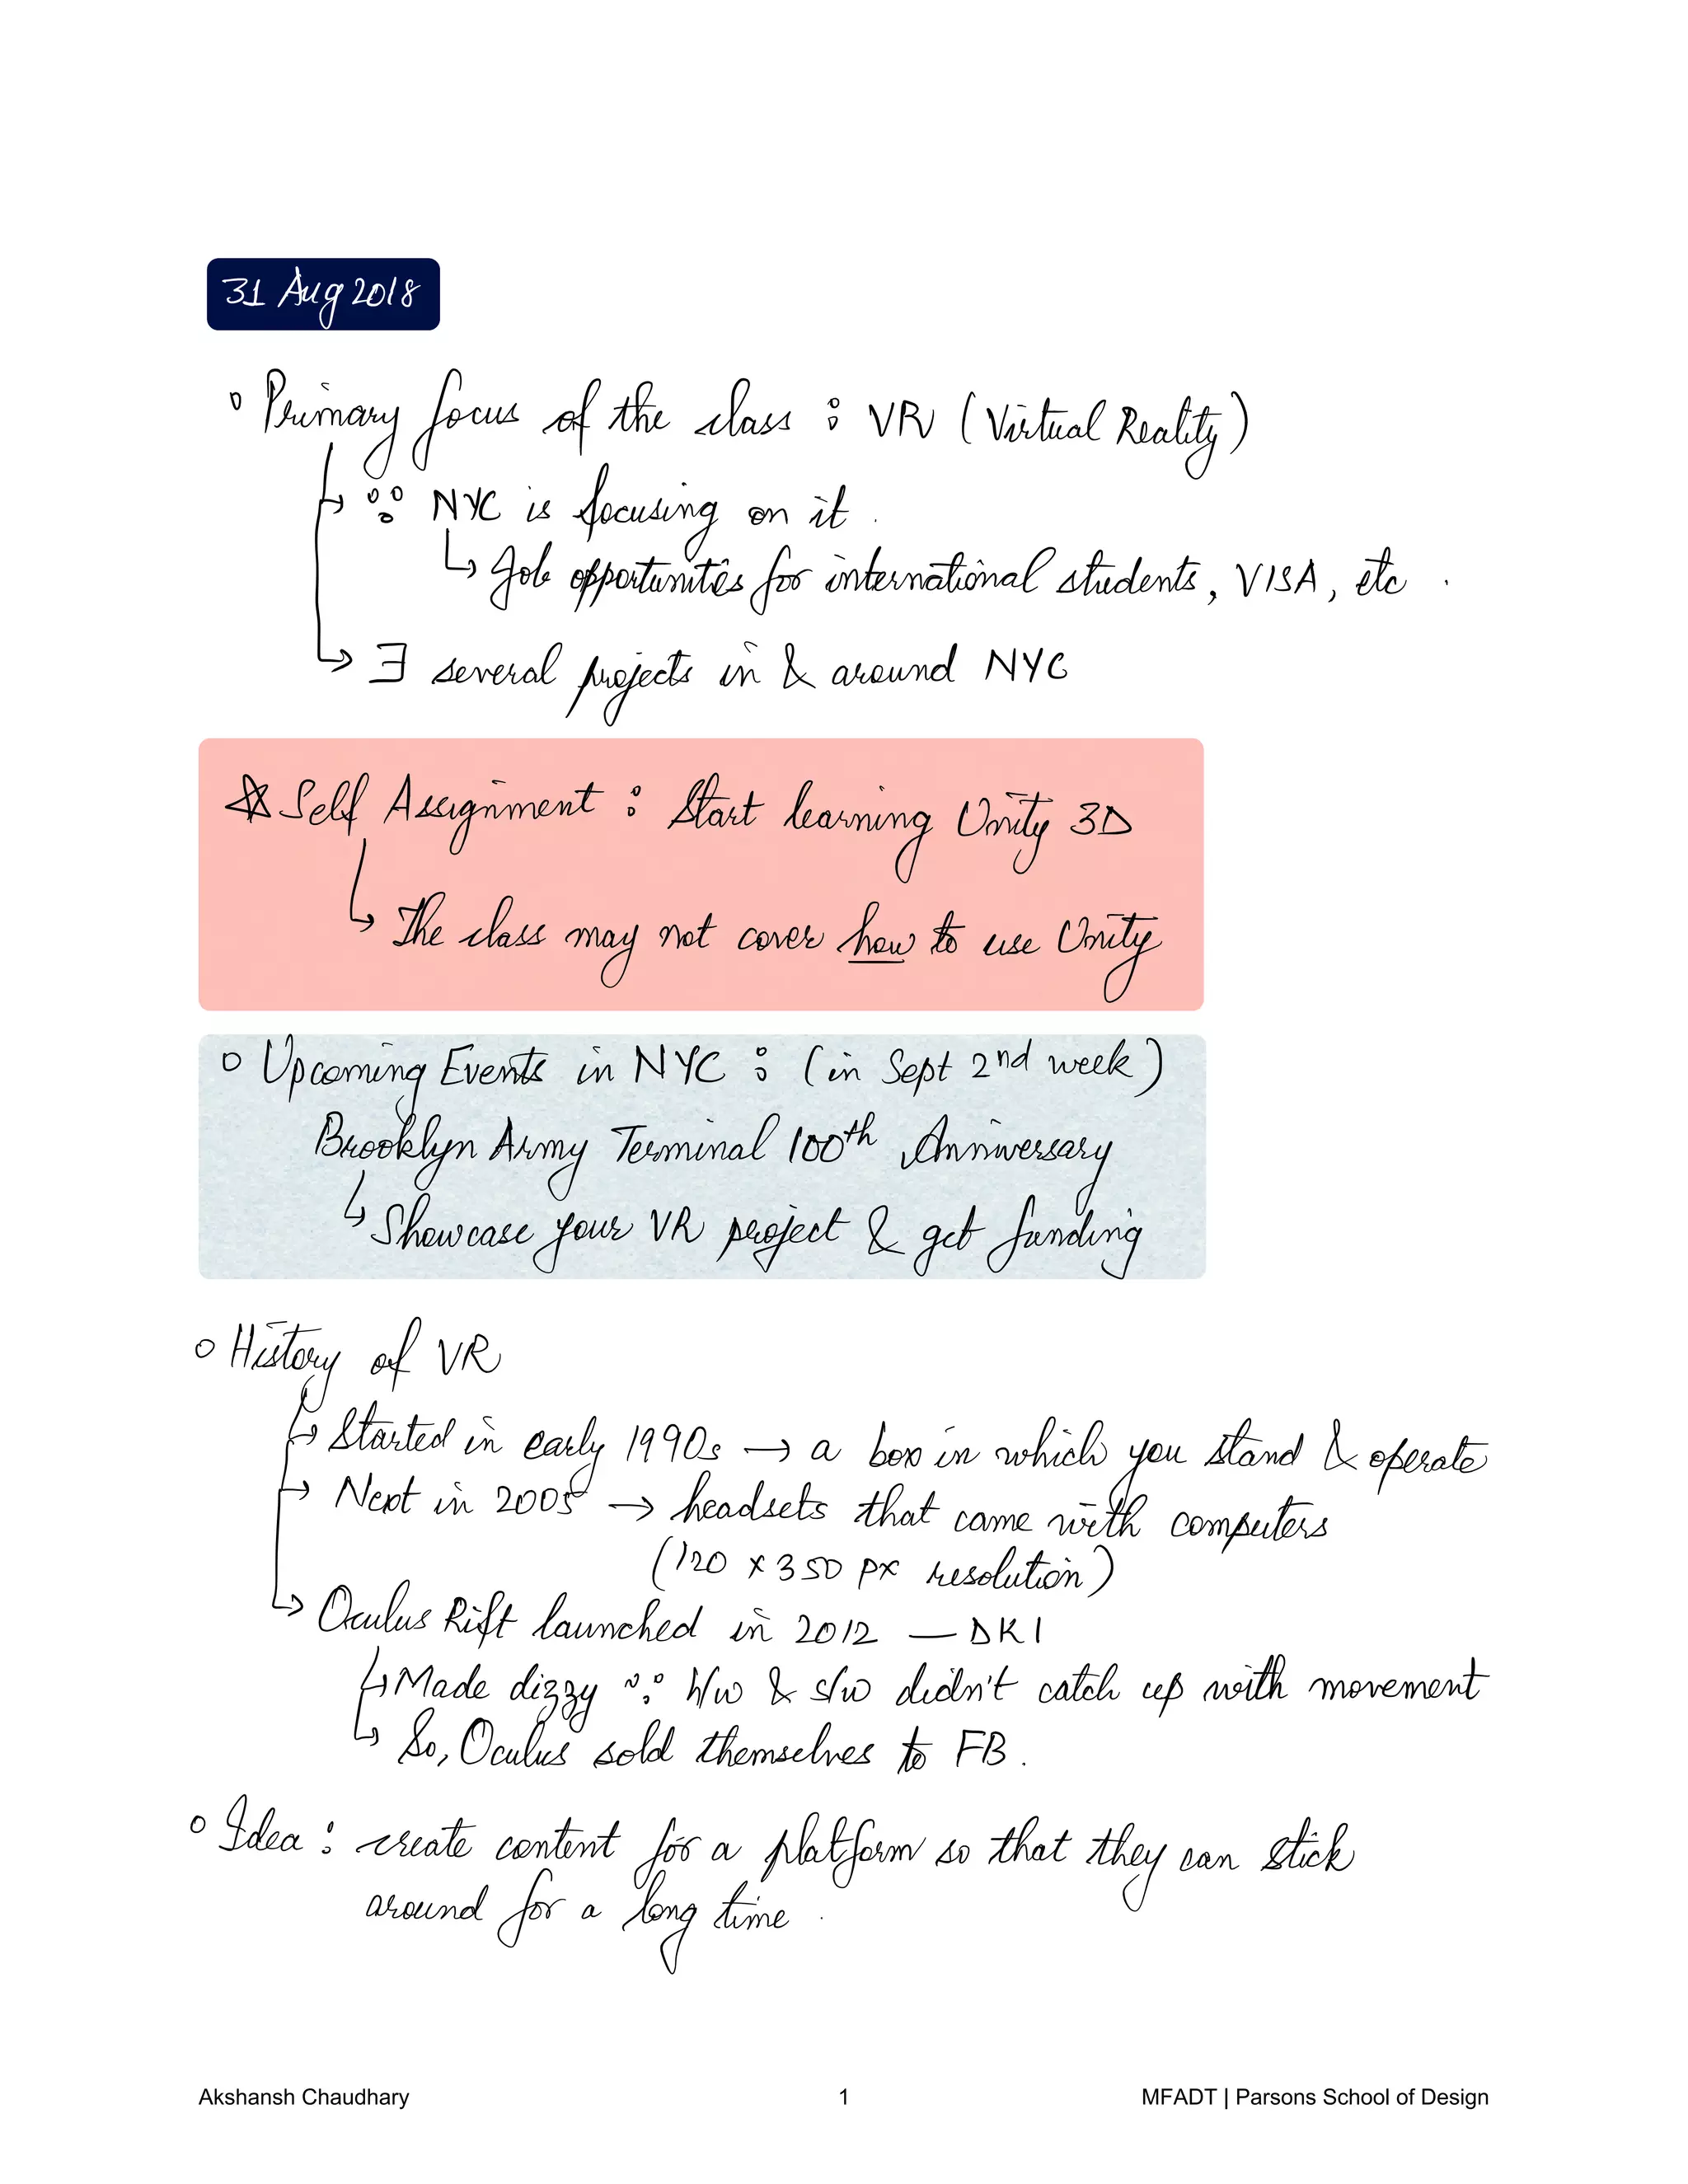 31 Aug 2018
Primary focus of the class : VR (Virtual Reality)
↳ ∵ NYC is focusing on it.
↳ Job opportunities for international students, VISA, etc.
↳ ∃ several projects in & around NYC
☆ Self Assignment : Start learning Unity 3D
↳ The class may not cover how to use Unity
Upcoming Events in NYC : (in Sept 2nd week)
Brooklyn Army Terminal 100th Anniversary
↳ Showcase your VR project & get funding
History of VR
↳ Started in early 1990s → a box in which you stand & operate
↳ Next in 2005 → headsets that came with computers
(120 x 350 px resolution)
↳ Oculus Rift launched in 2012 — DK1
↳ Made dizzy ∵ h/w & s/w didn't catch up with movement
↳ So, Oculus sold themselves to FB.
Idea : create content for a platform so that they can stick
around for a long time.
Akshansh Chaudhary 1 MFADT | Parsons School of Design